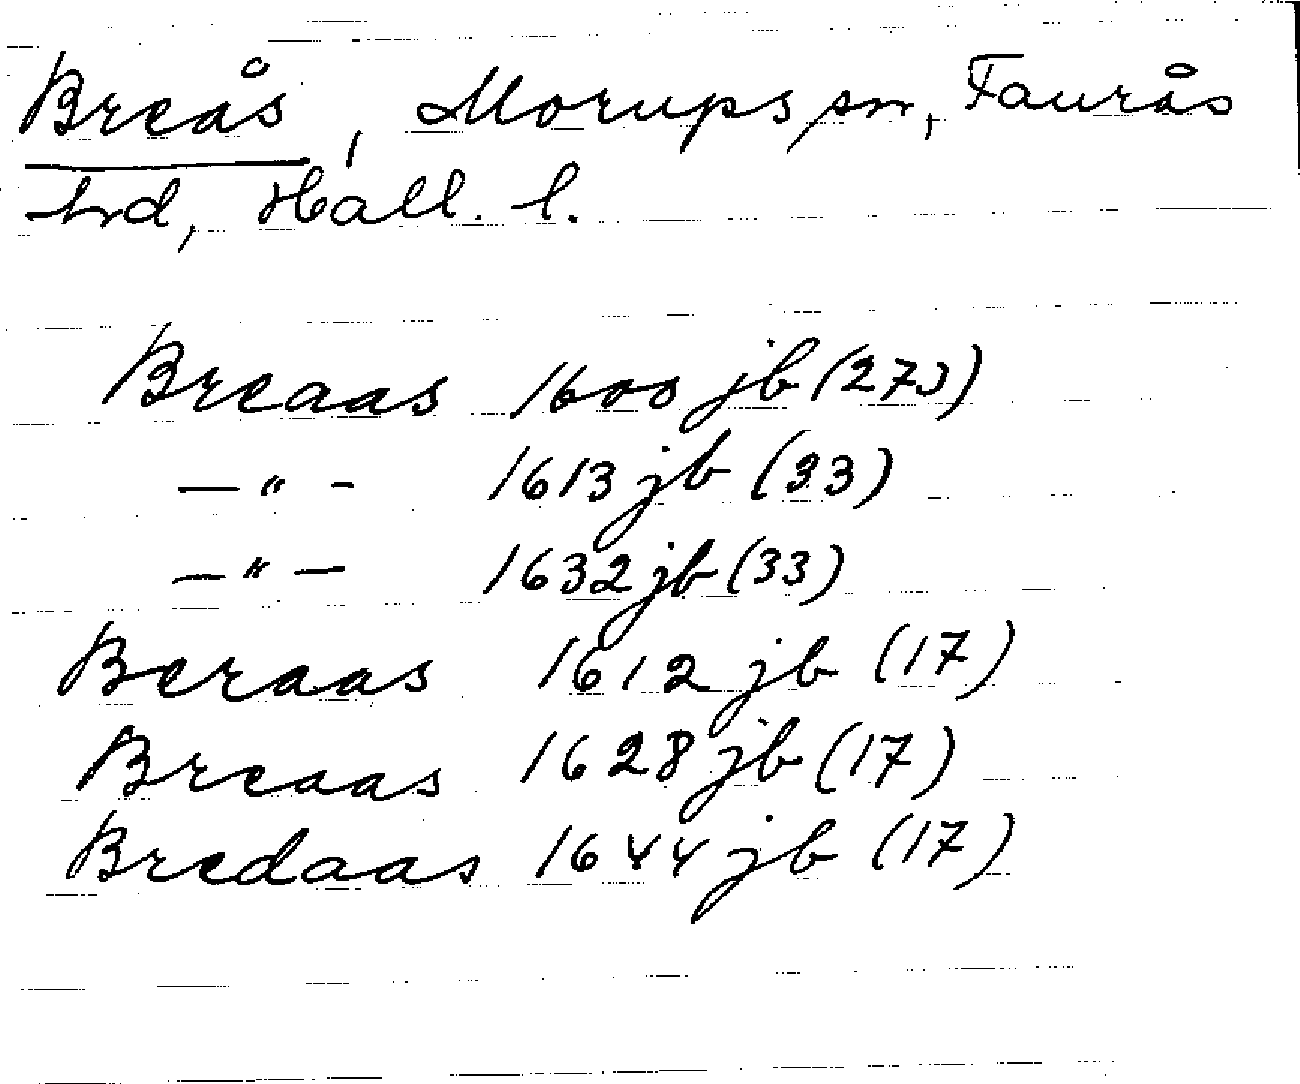 Breås, Morups sn, Faurås
hrd, Hall. l.
Breaas 1600 jb (27v)
— " - 1613 jb (33)
— " — 1632 jb (33)
Beraas 1612 jb (17)
Breaas 1628 jb (17)
Bredaas 1644 jb (17)